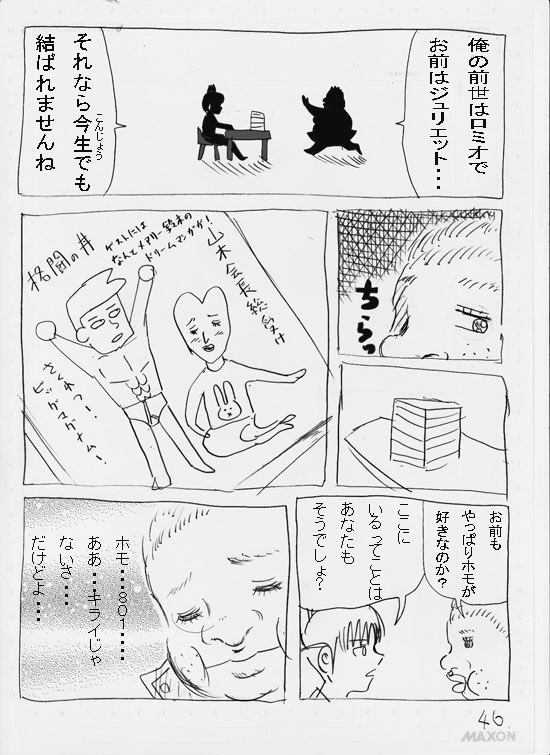 俺の前世はロミオで
お前はジュリエット・・・
それなら今生でも
こんじょう
結ばれませんね
ちらっ
山木会長総受け
ゲストには
なんとメアリー鈴木の
ドリームマンガが!
格闘の丼
さくれつー!
ビッグマグナム!
お前も
やっぱりホモが
好きなのか?
ここに
いるってことは
あなたも
そうでしょ?
ホモ・・・801・・・・
ああ・・・キライじゃ
ないさ・・・・
だけどよ・・・
46
MAXON